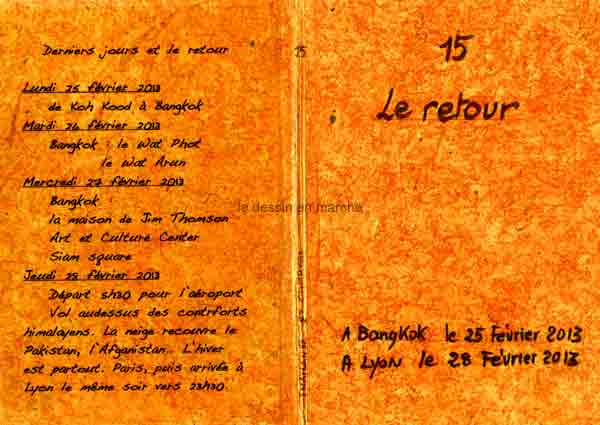 Derniers jours et le retour
Lundi 25 février 2013
de Koh Kood à Bangkok
Mardi 26 février 2013
Bangkok : le Wat Phot
le Wat Arun
Mercredi 27 février 2013
Bangkok :
la maison de Jim Thomson
Art et Culture Center
Siam square
Jeudi 28 février 2013
Départ 5h30 pour l'aéroport
Vol audessus des contrforts
himalayens. La neige recouvre le
Pakistan, l'Afganistan. L'hiver
est partout. Paris, puis arrivée à
Lyon le même soir vers 23h30.
15
le dessin en marche
15
Le retour
A Bangkok le 25 Février 2013
A Lyon le 28 Février 2013